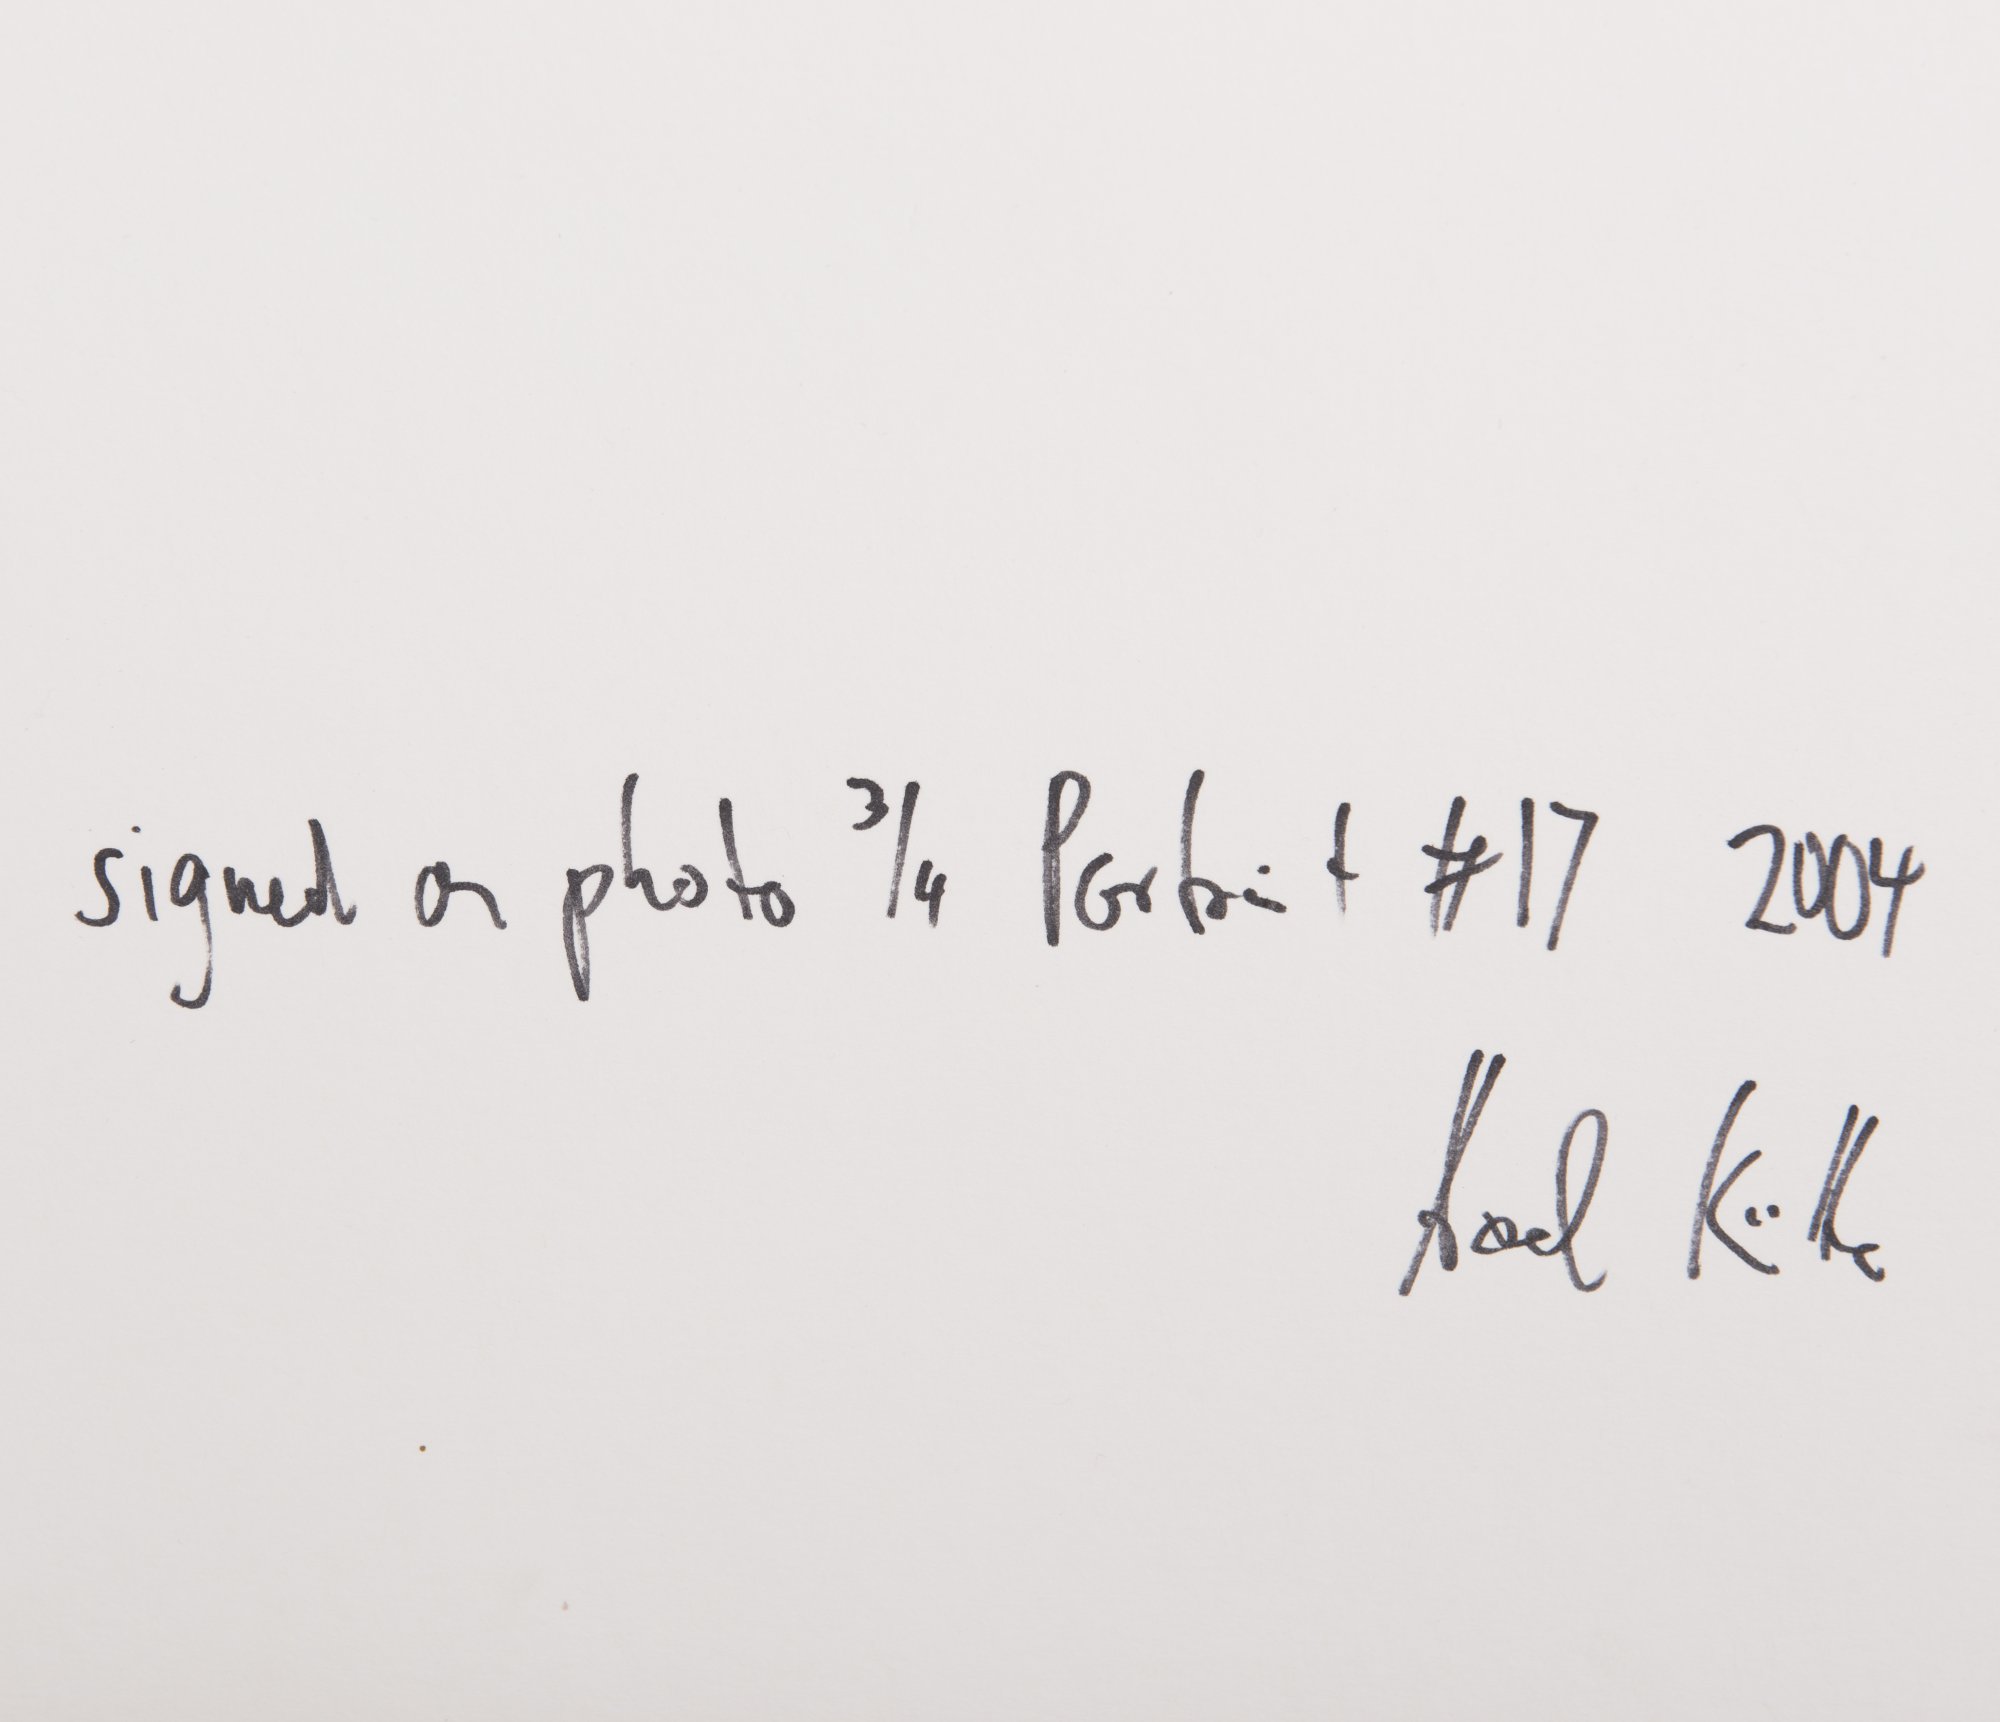 signed on photo 3/4 Portrait #17 2004
Axel Kü